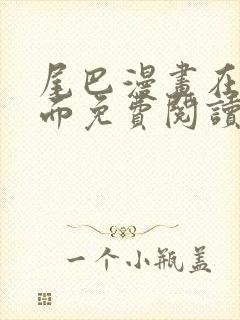 尾巴漫畫在
而免費閱讀
一个小瓶盖